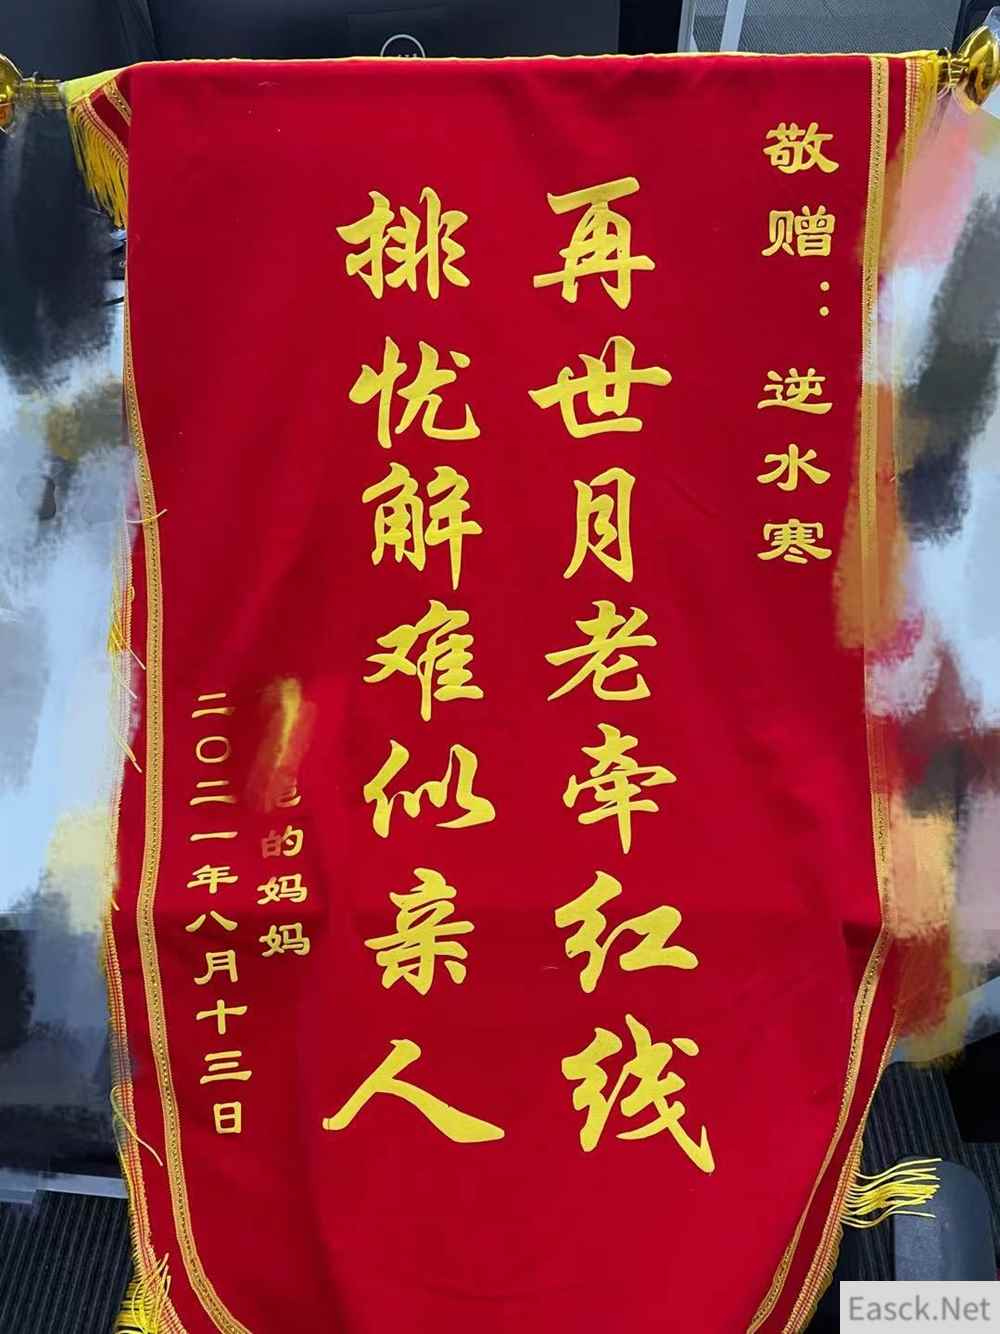 敬赠：逆水寒
再世月老牵红线
排忧解难似亲人
的妈妈
二〇二一年八月十三日
Easck.Net